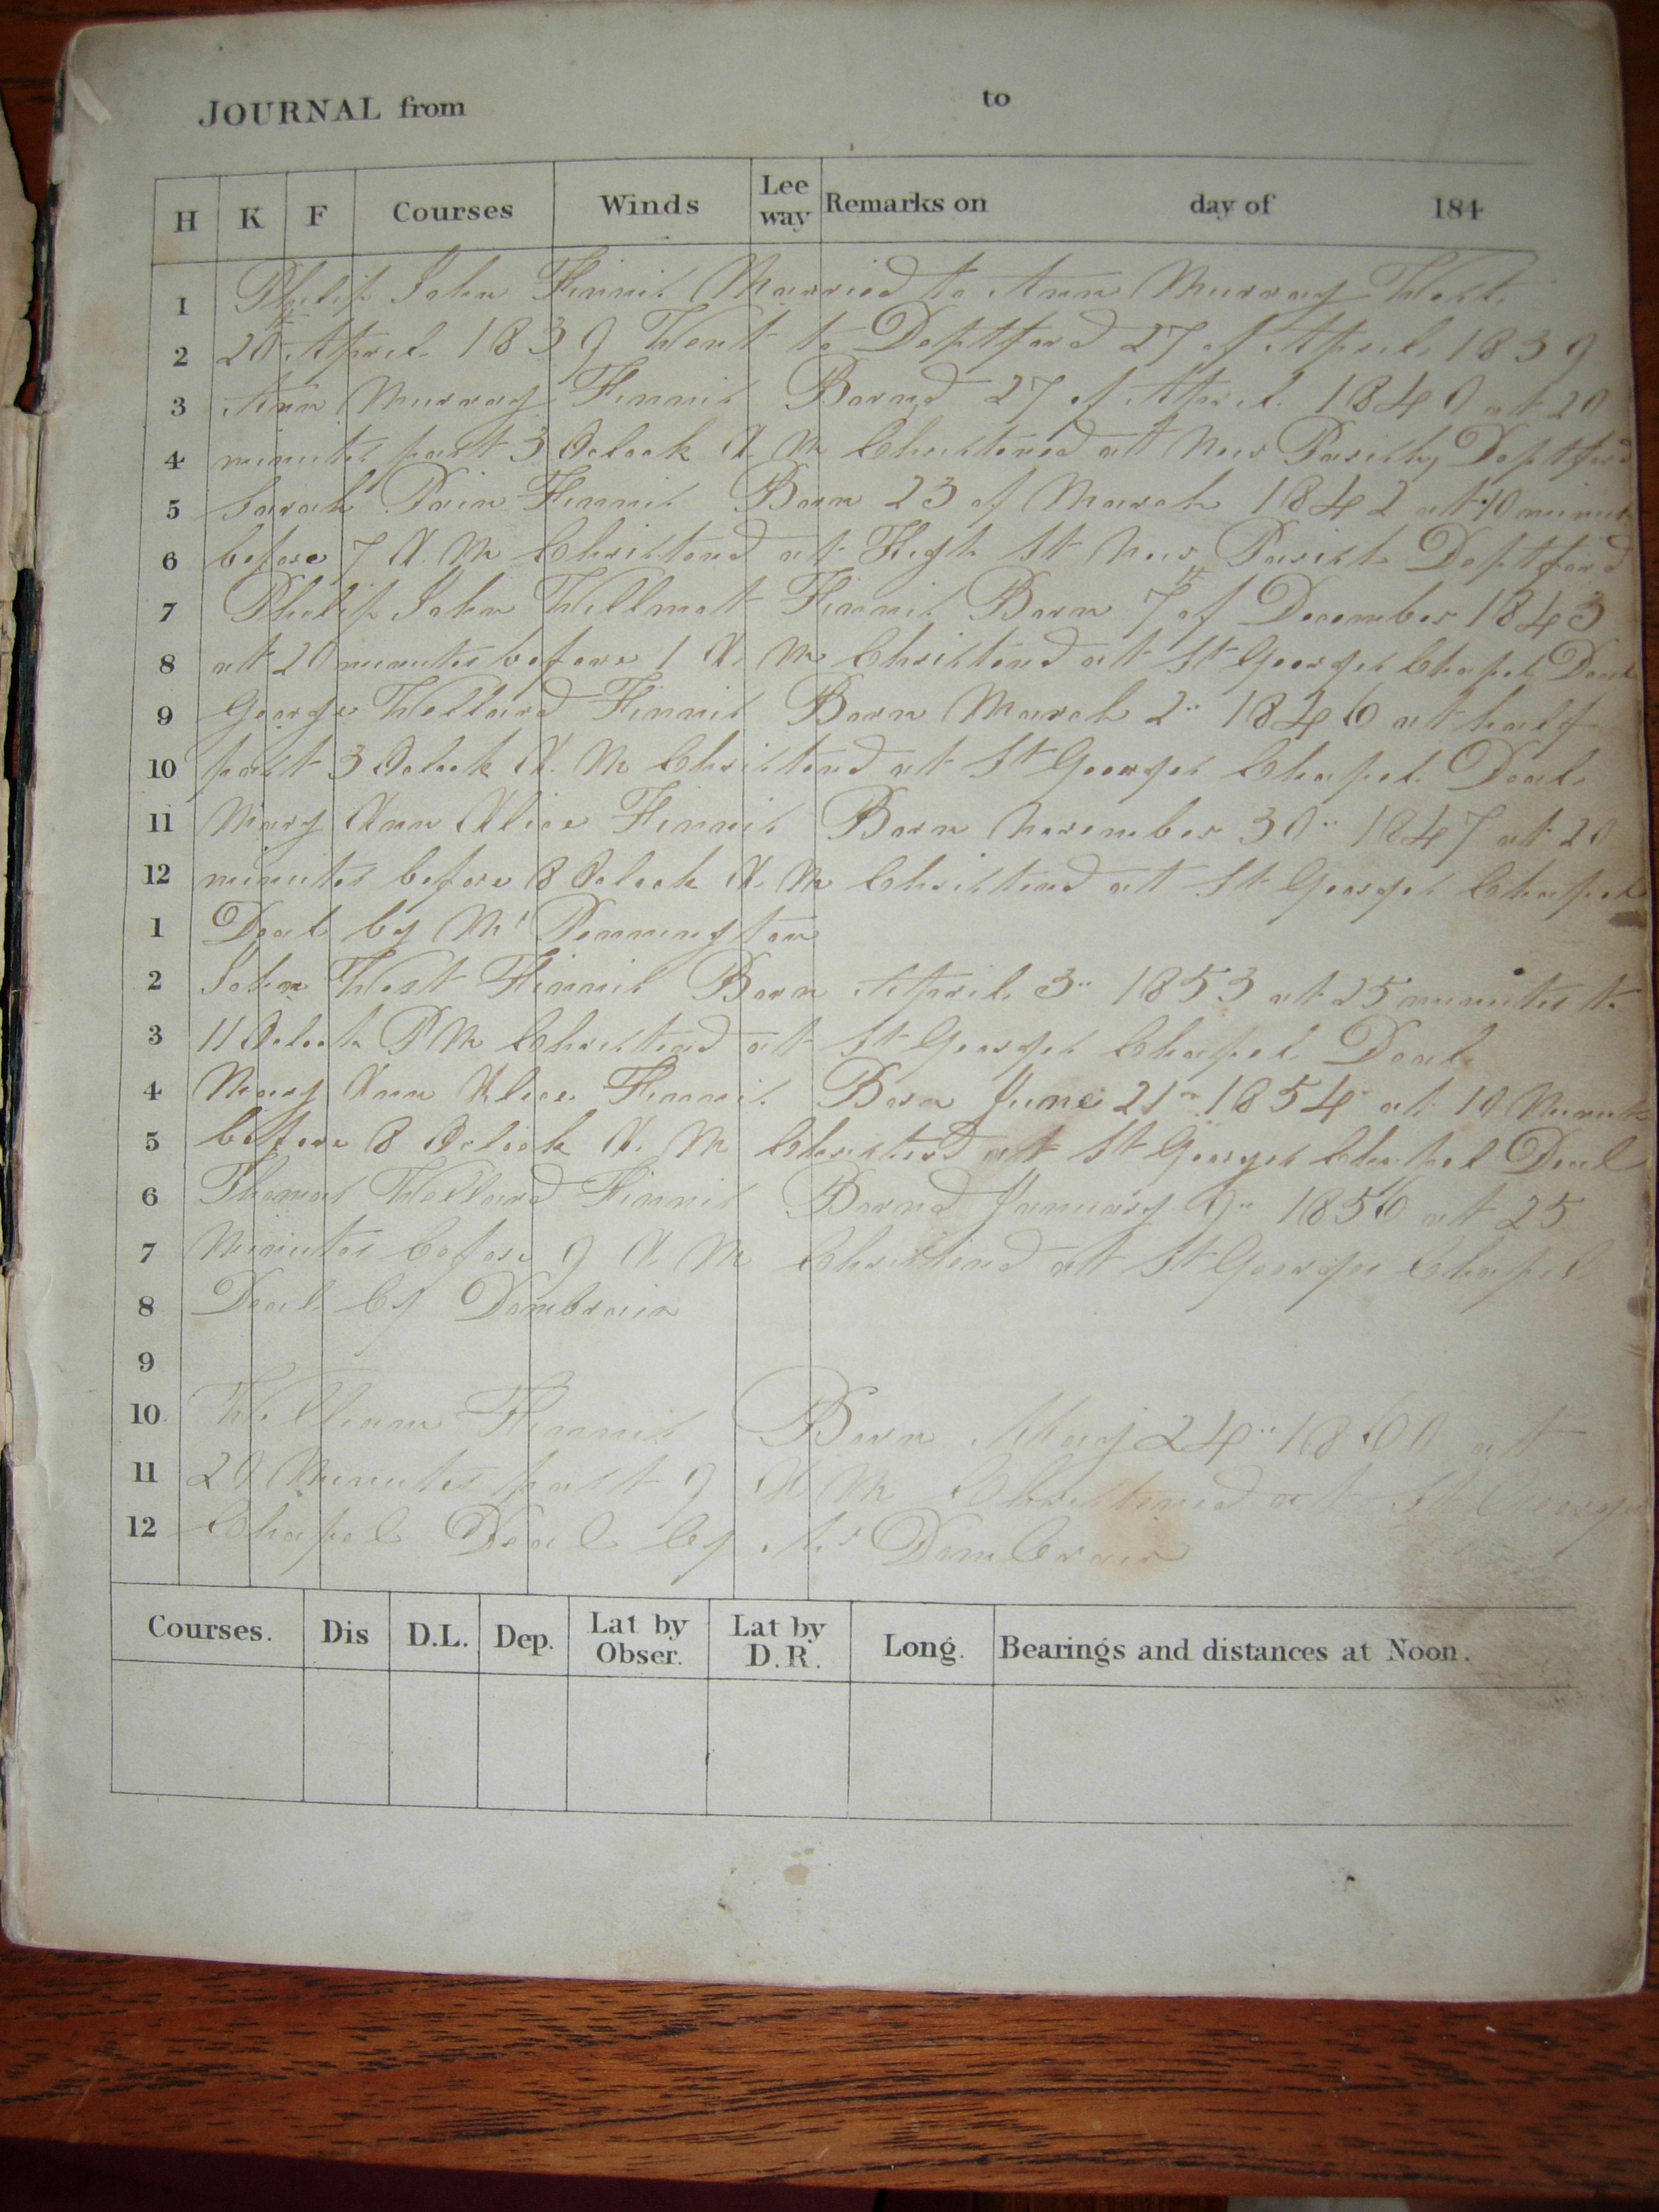 JOURNAL from to
H K F Courses Winds Lee way Remarks on day of 184
1 Philip John Finnis Married to Ann Murray West
2 20th April 1839 Went to Deptford 27 of April 1839
3 Ann Murray Finnis Borned 27 of April 1840 at 20
4 minutes past 3 Oclock A M Christened at New Parish Deptford
5 Sarah Pain Finnis Born 23 of March 1842 at 10 minut
6 before 7 A. M Christend at High St New Parish Deptford
7 Philip John Willmott Finnis Born 7th of December 1843
8 at 20 minutes before 1 A. M Christend at St Georges Chapel Deal
9 George Wellard Finnis Born March 2" 1846 at half
10 past 3 Oclock A. M Christend at St Georges Chapel Deal
11 Mary Ann Alice Finnis Born November 30" 1847 at 20
12 minutes before 8 Oclock A. M Christend at St Georges Chapel
1 Deal by Mr Pennington
2 John West Finnis Born April 3" 1853 at 25 minutes to
3 11 Oclock P M Christend at St Georges Chapel Deal
4 Mary Ann Alice Finnis Born June 21" 1854 at 10 Minuts
5 before 8 Oclock A. M Christend at St Georges Chapel Deal
6 Thomas Wellard Finnis Borned January 9" 1856 at 25
7 Minutes before 9 A. M Christend at St Georges Chapel
8 Deal by Dombrain
9
10 William Finnis Born May 24" 1860 at
11 20 Minutes past 9 A M Christened at St Georges
12 Chapel Deal by Mr Dombrain
Courses. Dis D.L. Dep. Lat by Obser. Lat by D.R. Long. Bearings and distances at Noon.